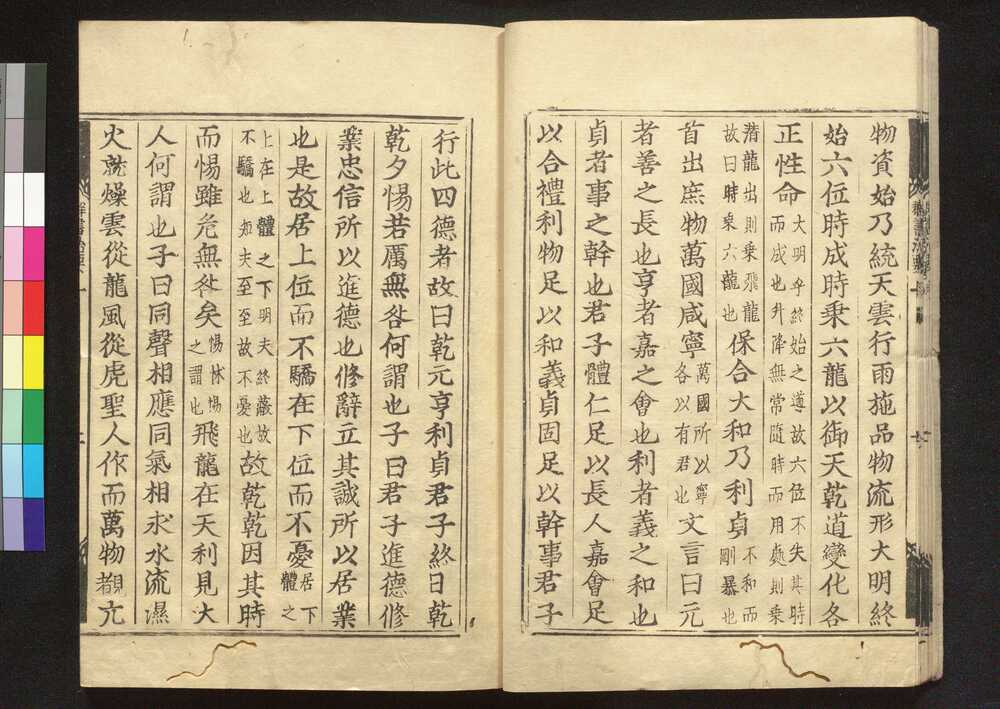 物資始乃統天雲行雨施品物流形大明終
始六位時成時乗六龍以御天乾道變化各
正性命大明乎終始之道故六位不失其時而成也升降無常隨時而用處則乗
潜龍出則乗飛龍故曰時乗六龍也保合大和乃利貞不和而剛暴也
首出庶物萬國咸寧萬國所以寧各以有君也文言曰元
者善之長也亨者嘉之會也利者義之和也
貞者事之幹也君子體仁足以長人嘉會足
以合禮利物足以和義貞固足以幹事君子
行此四德者故曰乾元亨利貞君子終日乾
乾夕惕若厲無咎何謂也子曰君子進德修
業忠信所以進德也修辭立其誠所以居業
也是故居上位而不驕在下位而不憂居下體之
上在上體之下明夫終敝故不驕也知夫至至故不憂也故乾乾因其時
而惕雖危無咎矣惕怵惕之謂也飛龍在天利見大
人何謂也子曰同聲相應同氣相求水流濕
火就燥雲從龍風從虎聖人作而萬物覩亢